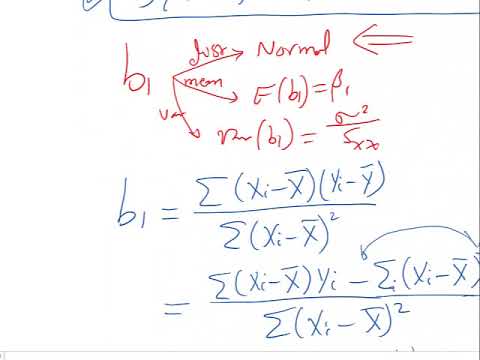 dist Normal ⇐
b₁ mean E(b₁) = β₁
Var Var(b₁) = σ² / Sxx
b₁ = Σ(Xi − X̄)(Yi − Ȳ) / Σ(Xi − X̄)²
= Σ(Xi − X̄)Yi − Σi(Xi − X̄) / Σ(Xi − X̄)²